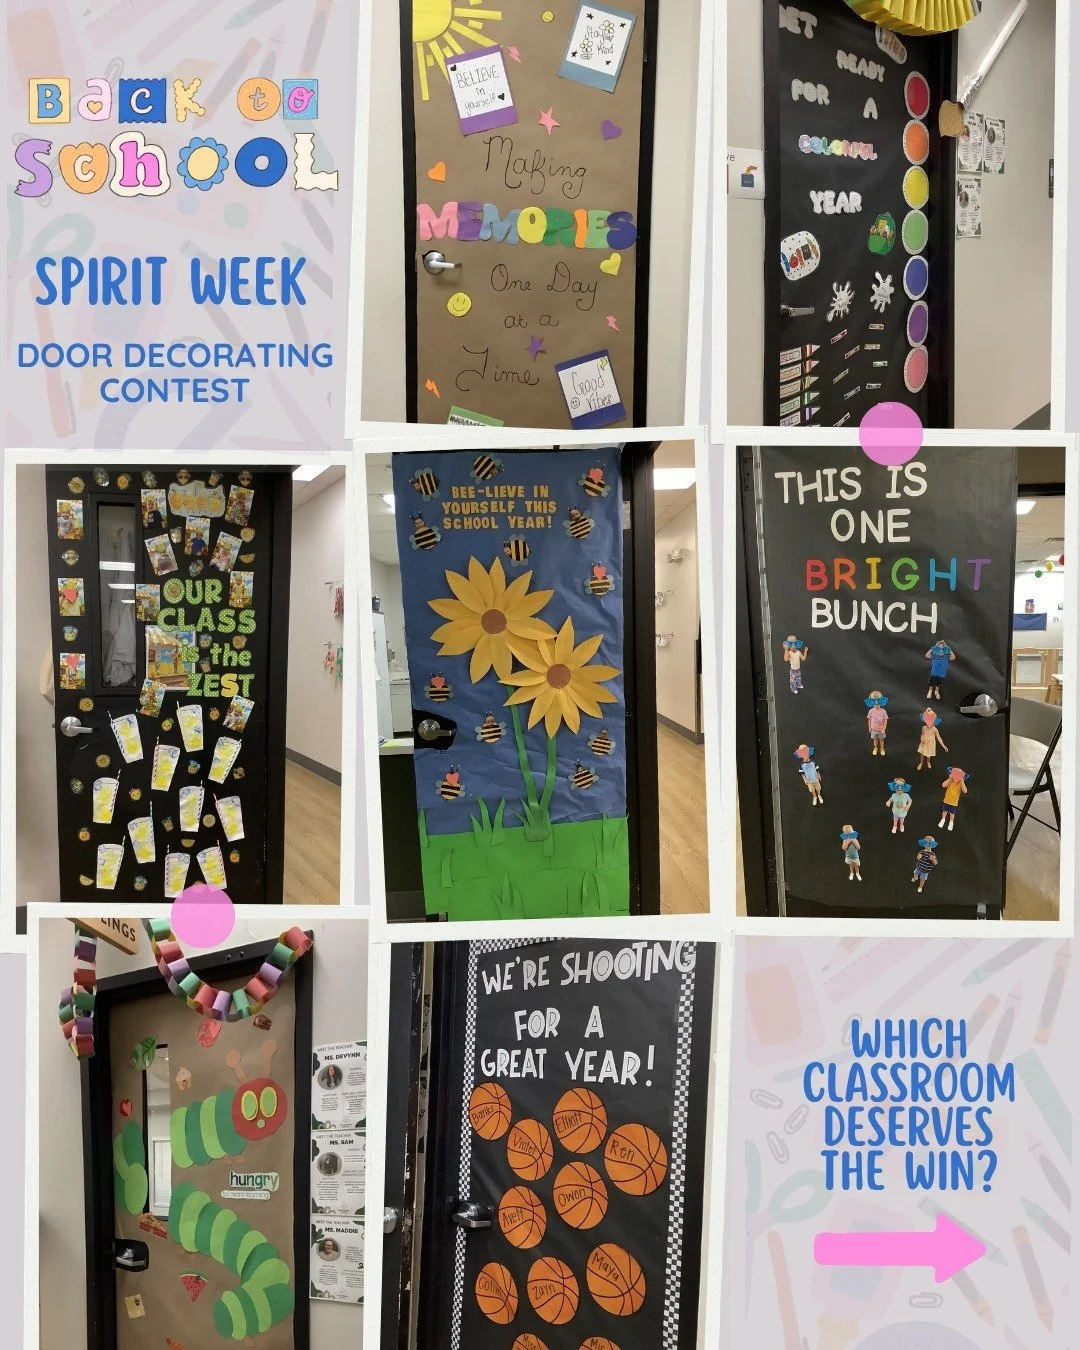 BaCK to
SCHOOL
SPIRIT WEEK
DOOR DECORATING
CONTEST
BELIEVE
in
yourself
Stay
Kind
Making
MEMORIES
One Day
at a
Time
Good
Vibes
GET
READY
FOR A
COLORFUL
YEAR
OUR
CLASS
is the
ZEST
BEE-LIEVE IN
YOURSELF THIS
SCHOOL YEAR!
THIS IS
ONE
BRIGHT
BUNCH
LINGS
hungry
for more learning
MEET THE TEACHER
MS. DEVYNN
MEET THE TEACHER
MS. SAM
MEET THE TEACHER
MS. MADDIE
WE'RE SHOOTING
FOR A
GREAT YEAR!
Banks
Violet
Elliott
Ren
Owen
Avett
Colli
Zayn
Maya
Ms
Ms
WHICH
CLASSROOM
DESERVES
THE WIN?